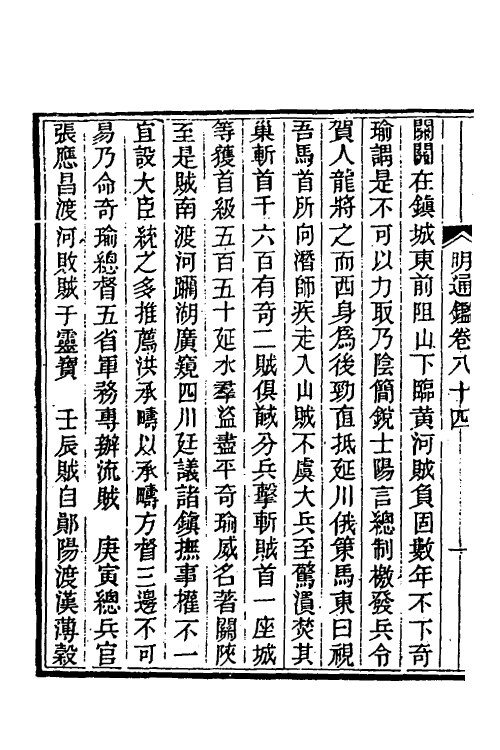 明通鑑卷八十四 一
關關在鎮城東前阻山下臨黃河賊負固數年不下奇
瑜謂是不可以力取乃陰簡銳士陽言總制檄發兵令
賀人龍將之而西身爲後勁直抵延川俄策馬東曰視
吾馬首所向潛師疾走入山賊不虞大兵至驚潰焚其
巢斬首千六百有奇二賊俱馘分兵擊斬賊首一座城
等獲首級五百五十延水羣盜盡平奇瑜威名著關陝
至是賊南渡河躪湖廣窺四川廷議諸鎮撫事權不一
宜設大臣統之多推薦洪承疇以承疇方督三邊不可
易乃命奇瑜總督五省軍務專辦流賊 庚寅總兵官
張應昌渡河敗賊于靈寶 壬辰賊自鄖陽渡漢薄穀